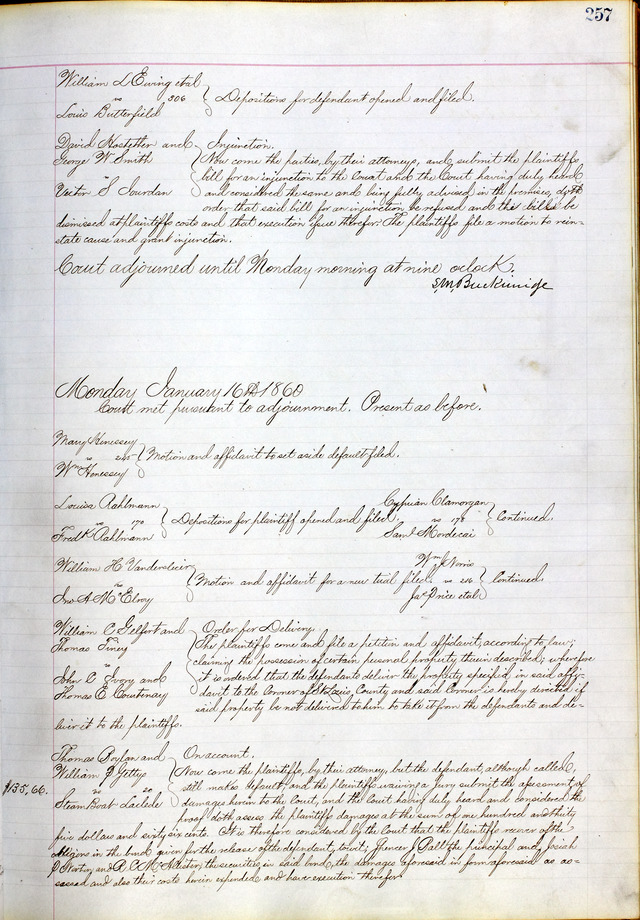 257
William L Ewing etal
vs 306 Depositions for defendant opened and filed.
Louis Butterfield
David Hostetter and Injunction.
George W Smith Now come the parties, by their attorneys, and submit the plaintiffs
vs bill for an injunction to the Court and the Court having duly heard
Victor S Jourdan and considered the same and being fully advised in the premises, doth
order that said bill for an injunction be refused and the bill be
dismissed at plaintiffs costs and that execution issue therefor. The plaintiffs file a motion to rein-
state cause and grant injunction.
Court adjourned until Monday morning at nine oclock.
S.M. Buckinridge
Monday January 16th 1860
Court met pursuant to adjournment. Present as before.
Mary Henessey
vs Motion and affidavit to set aside default filed.
Wm Henessey
Louisa Aahlmann Cyprian Clamorgan
vs 170 Depositions for plaintiff opened and filed. vs 178 Continued.
Fredk Aahlmann Saml Mordecai
William H Vandervlicer Wm J Norris
vs Motion and affidavit for a new trial filed. vs 216 Continued.
Jno A McElroy Jas Price etal
William C Gelfort and Order for Delivery.
Thomas Finey The plaintiffs come and file a petition and affidavit, according to law;
vs claiming the possession of certain personal property therein described; wherefore
John C Ivory and it is ordered that the defendants deliver the property specified in said affi-
Thomas E Courtenay davit to the Corner of St Louis County and said Corner is hereby directed if
said property be not delivered to him to take it from the defendants and de-
liver it to the plaintiffs.
Thomas Boylan and On account.
William J Gettys Now come the plaintiffs, by their attorney, but the defendant, although called,
$135,66. vs 20 still makes default, and the plaintiffs waiving a jury submit the assessment of
Steam Boat Laclede damages herein to the Court, and the Court having duly heard and considered the
proof doth assess the plaintiffs damages at the sum of one hundred and thirty
five dollars and sixty six cents. It is therefore considered by the Court that the plaintiffs recover of the
obligors in the bond given for the release of the defendant, towit; Spencer J Ball, the principal and Josiah
J Worthing and R A McAllister, the securities in said bond, the damages aforesaid in form aforesaid as as-
sessed and also their costs herein expended and have execution therefor.